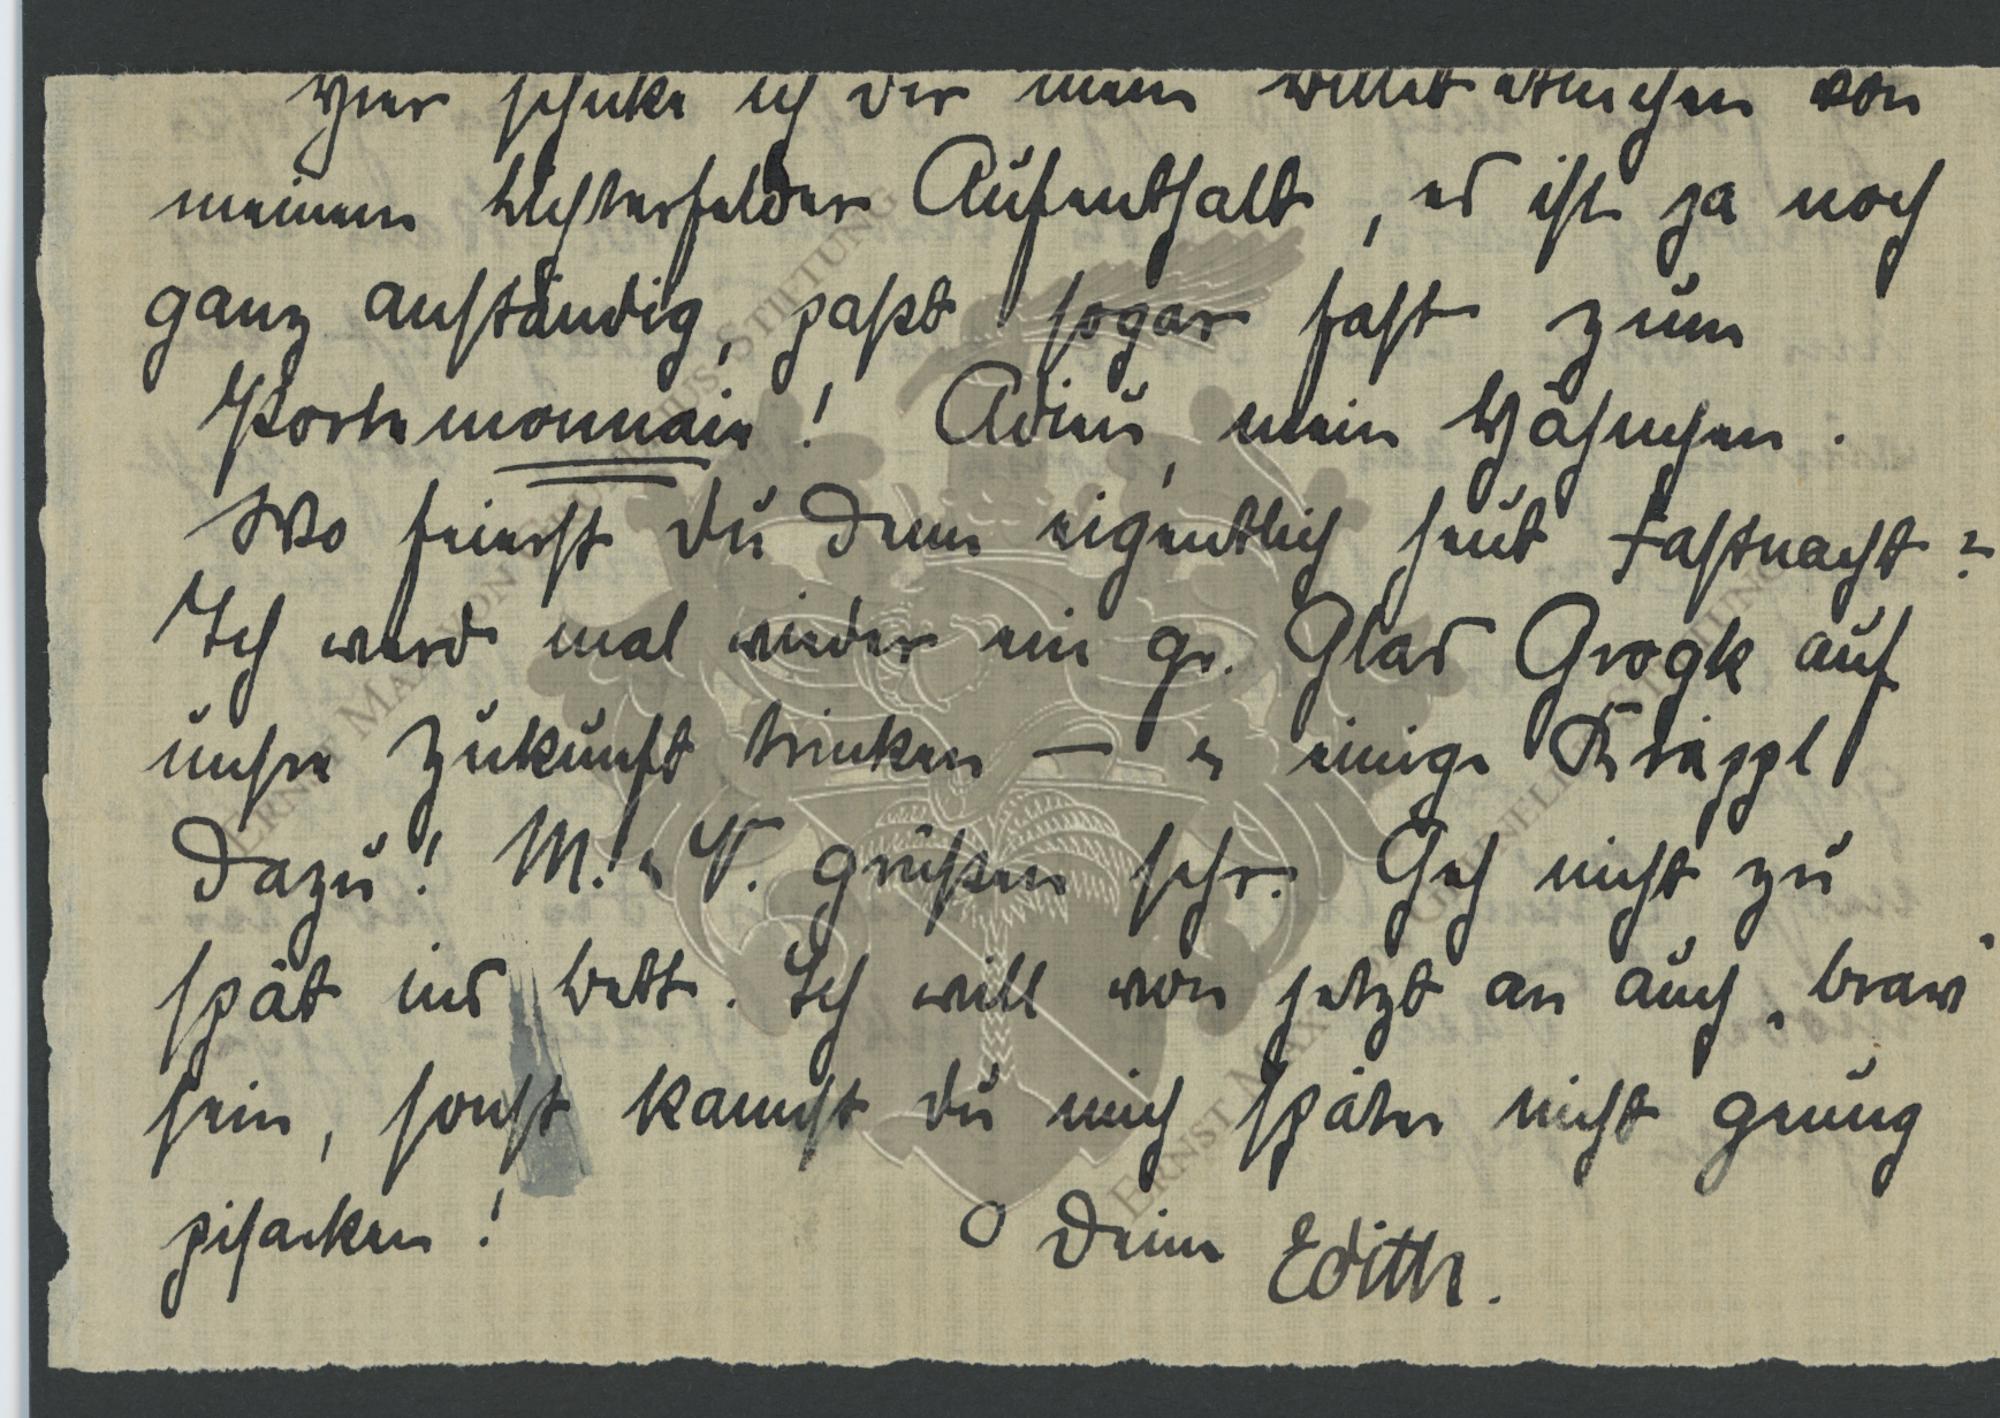 Hier schicke ich Dir mein Billetetuichen von
meinem Lichterfelder Aufenthalt, es ist ja noch
ganz anständig, paßt sogar fast zum
Portemonnaie! Adieu, mein Hähnchen.
Wo feierst Du denn eigentlich heut Fastnacht?
Ich werd mal wieder ein gr. Glas Grogk auf
unsre Zukunft trinken — u einige Kräppl
dazu! M. u V. grüßen sehr. Geh nicht zu
spät ins Bett. Ich will von jetzt an auch „brav“
sein, sonst kannst Du mich später nicht genug
pisacken!
O Deine Edith.
ERNST MAX VON GRUNELIUS STIFTUNG
ERNST MAX VON GRUNELIUS STIFTUNG